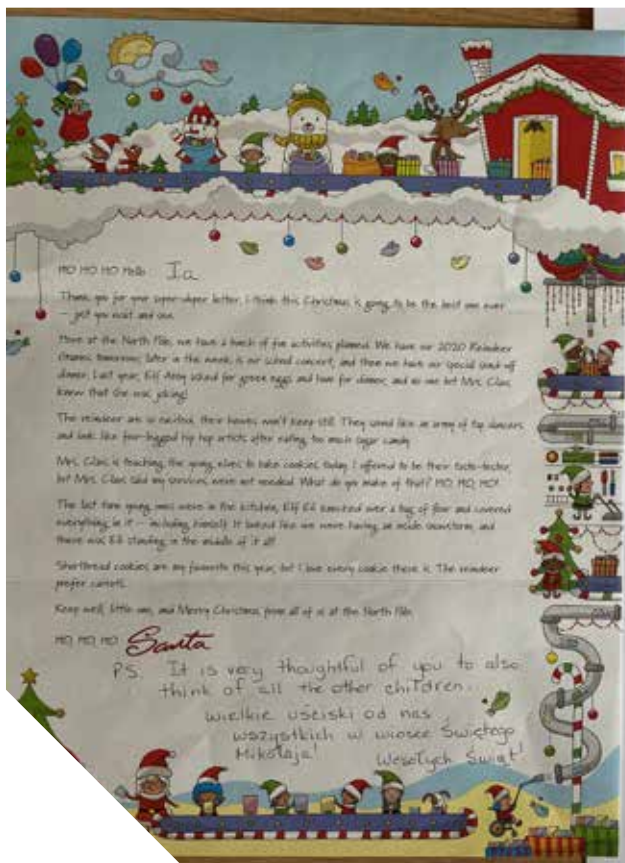 HO HO HO Hello Ia
Thank you for your super-duper letter. I think this Christmas is going to be the best one ever
– just you wait and see.
Here at the North Pole, we have a bunch of fun activities planned. We have our 2020 Reindeer
Games tomorrow; later in the week, is our school concert; and then we have our special send-off
dinner. Last year, Elf Amy asked for green eggs and ham for dinner, and no one but Mrs. Claus
knew that she was joking!
The reindeer are so excited, their hooves won't keep still. They sound like an army of tap dancers
and look like four-legged hip hop artists after eating too much sugar candy.
Mrs. Claus is teaching the young elves to bake cookies today. I offered to be their taste-tester,
but Mrs. Claus said my services were not needed. What do you make of that? HO, HO, HO!
The last time young ones were in the kitchen, Elf Eé knocked over a bag of flour and covered
everything in it – including himself. It looked like we were having an inside snowstorm, and
there was Eé standing in the middle of it all!
Shortbread cookies are my favorite this year, but I love every cookie there is. The reindeer
prefer carrots.
Keep well, little one, and Merry Christmas from all of us at the North Pole,
HO, HO, HO! Santa
PS. It is very thoughtful of you to also
think of all the other children..
wielkie uściski od nas
wszystkich w wiosce Świętego
Mikołaja! Wesołych Świąt!